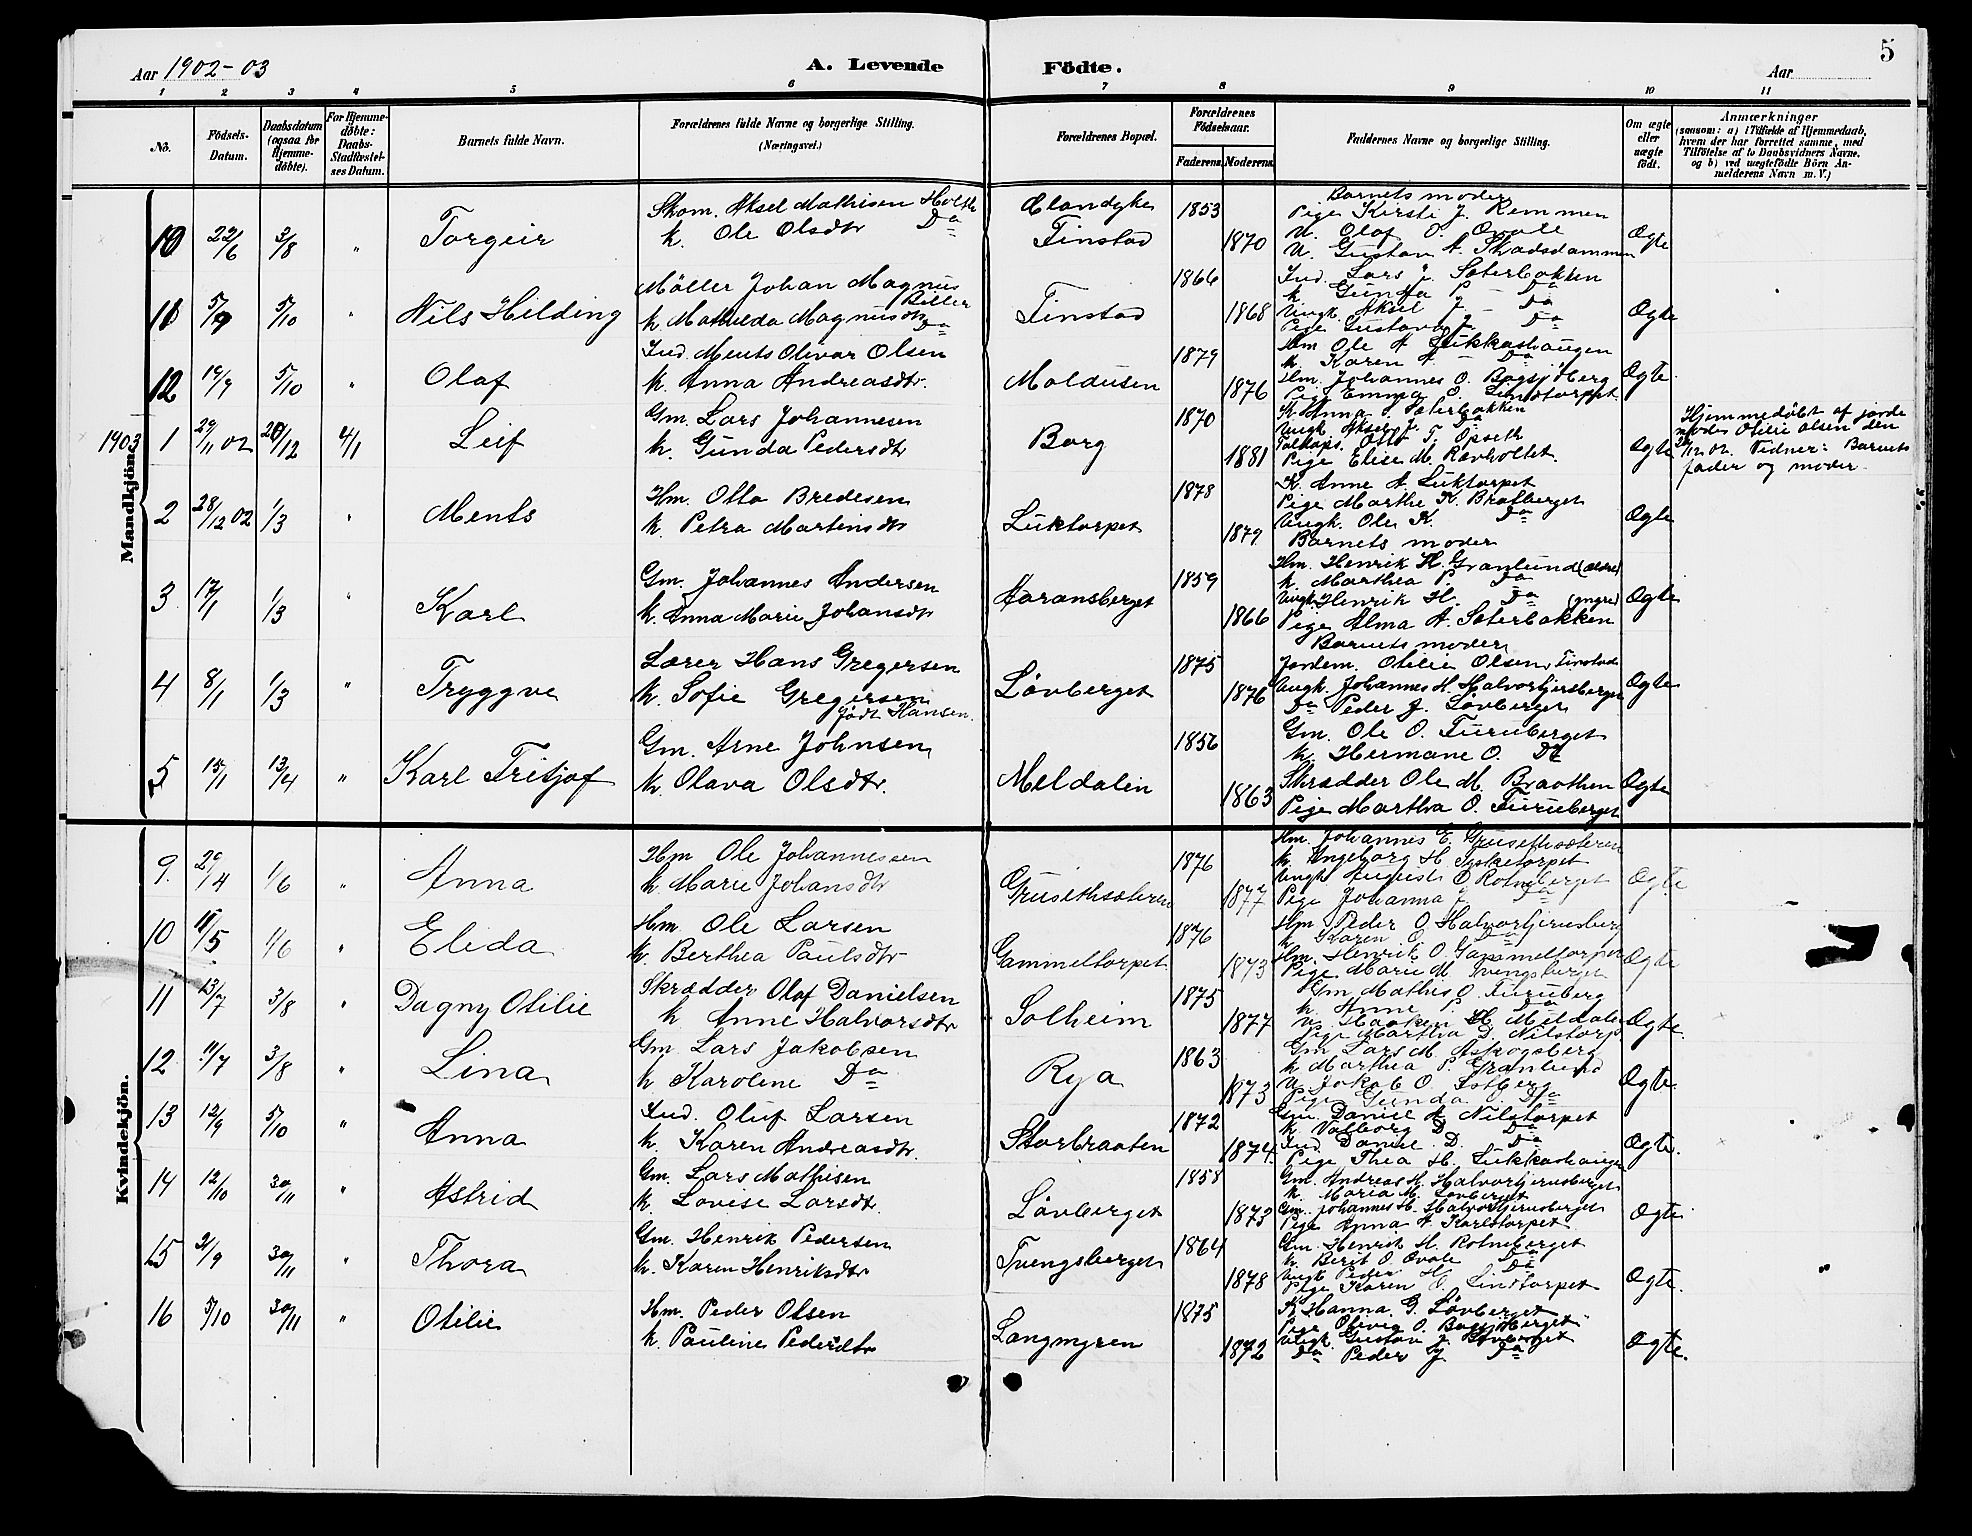 5
Aar 1902-03
A. Levende
Födte.
Aar
1 2 3 4 5 6 7 8 9 10 11
No.
Födsels-Datum.
Daabsdatum (ogsaa for Hjemme-döbte).
For Hjemme-döbte: Daabs-Stadfæstel-ses Datum.
Barnets fulde Navn.
Forældrenes fulde Navne og borgerlige Stilling.
(Næringsvei.)
Forældrenes Bopæl.
Forældrenes Födselsaar.
Faderens. Moderens.
Faddernes Navne og borgerlige Stilling.
Om ægte eller uægte födt.
Anmærkninger
(saasom: a) i Tilfælde af Hjemmedaab, hvem der har forrettet samme, med Tilföielse af to Daabsvidners Navne, og b) ved uægtefödte Börn An-melderens Navn m. V.)
Mandkjön.
10 22/6 3/8 " Torgeir
Skom. Aksel Mathisen Holth
k. Ole Olsdtr Do
Finstad
1853 1870
Barnets moder
Pige Kirsti J. Remmen
U. Olaf O. Ovale
U. Gustav A. Skadsdammen
Ægte
11 5/9 5/10 " Nils Hilding
Möller Johan Magnus Biller
k. Mathilda Magnusdtr Do
Finstad
1866 1868
Ind. Lars J. Sæterbakken
k. Gunda P. Do
Ungk. Aksel J. Do
Pige Gustava J. Do
Ægte
12 14/9 5/10 " Olaf
Ind. Ments Olivar Olsen
k. Anna Andreasdtr.
Moldusen
1879 1876
Hm Ole A Lukkashaugen
k. Karen A. Do
Hm. Johannes O. Bogsjöberg
Pige Emma O. Lindtorpet.
Ægte.
1903
1 29/11 02 20/12 4/1 Leif
Gm. Lars Johannesen
k. Gunda Pedersdtr
Borg
1870 1881
K. Anna J. Sæterbakken
Ungk. Aksel J. Do
Otto T. Opseth
Pige Elise M. Rævholtet.
Ægte
Hjemmedöbt af jorde
moder Otilie Olsen den
20/12 02. Vidner: Barnets
fader og moder.
2 28/12 02 1/3 " Ments
Hm. Otto Bredesen
k. Petra Martinsdtr
Luktorpet
1878 1879
K. Anne A. Luktorpet
Pige Marthe K. Bratberget
Ungk. Ole K. Do
Barnets moder
Ægte
3 17/1 1/3 " Karl
Gm. Johannes Andersen
k. Anna Marie Johansdtr
Aaransberget
1859 1866
Hm. Henrik H. Granlund (ældre)
k. Marthea P. Do
Ungk. Henrik H. Do (yngre)
Pige Alma A. Sæterbakken
Ægte
4 8/1 1/3 " Tryggve
Lærer Hans Gregersen
k. Sofie Gregersen
födt Hansen.
Lövberget
1875 1876
Barnets moder
Jordem. Otilie Olsen, Finstad
Ungk. Johannes H. Halvorhjersberget
Do Peder J. Lövberget
Ægte
5 15/1 13/4 " Karl Fritjof
Gm. Arne Johnsen
k. Olava Olsdtr.
Meldalen
1856 1863
Gm. Ole O. Furuberget
k. Hermane O. Do
Skrædder Ole M. Braathen
Pige Martha O. Furuberget
Ægte
Kvindekjön.
9. 20/4 1/6 " Anna
Hm Ole Johannessen
k. Marie Johansdtr
Grusethsæteren
1876 1877
Hm. Johannes E. Grusethsæteren
k. Ingeborg H. Tysketorpet
Ungk. August O Rotneberget
Pige Johanna J. Do
Ægte
10 11/5 1/6 " Elida
Hm Ole Larsen
k. Berthea Paulsdtr
Gammeltorpet
1876 1873
Hm Peder O Halvorhjerusberg
k Karen O. Do
Hm. Henrik O. Gammeltorpet
Pige Marie M. Tvengsberget
Ægte
11 13/7 3/8 " Dagny Otilie
Skrædder Olaf Danielsen
k Anne Halvorsdtr
Solheim
1875 1877
Gm Mathis O. Furuberg
k. Anne P. Do
U. Haaken H. Meldalen
Pige Martha D. Nilstorp
Ægte.
12 11/7 3/8 " Lina
Gm. Lars Jakobsen
k Karoline Do
Rya
1863 1873
Gm Lars M Askogsberg
k Marthea P. Granlund
U. Jakob O. Løtberg
Pige Gunda Do
Ægte.
13 12/9 5/10 " Anna
Ind. Oluf Larsen
k. Karen Andreasdtr.
Storbraaten
1872 1874.
Gm. Daniel A. Nilstorpet
k Valborg D Do
Ind Daniel D. Do
Pige Thea H. Lukkashaugen
Ægte.
14 12/10 30/11 " Astrid
Gm. Lars Mathisen
k. Lovise Larsdtr.
Lövberget
1858 1873
Gm. Andreas H. Halvorhjerusberget
k. Maria M. Lövberget
Gm. Johannes H. Halvorhjerusberget
Pige Anna A Karlstorpet
Ægte
15 21/9 30/11 " Thora
Gm. Henrik Pedersen
k. Karen Henriksdtr
Tvengsberget
1864 1878
Gm. Henrik H. Rotneberget
k. Berit O. Ovale
Ungk Peder H Do
Pige Karen O. Lindtorpet
Ægte.
16 5/10 30/11 " Otilie
Hm. Peder Olsen
k. Pauline Pedersdtr
Langmyren
1875 1872
K Hanna G. Lövberget
Pige Oliva O. Bogsjöberget
Ungk Gustav J. Lövberget
Do Peder J Do
Ægte.